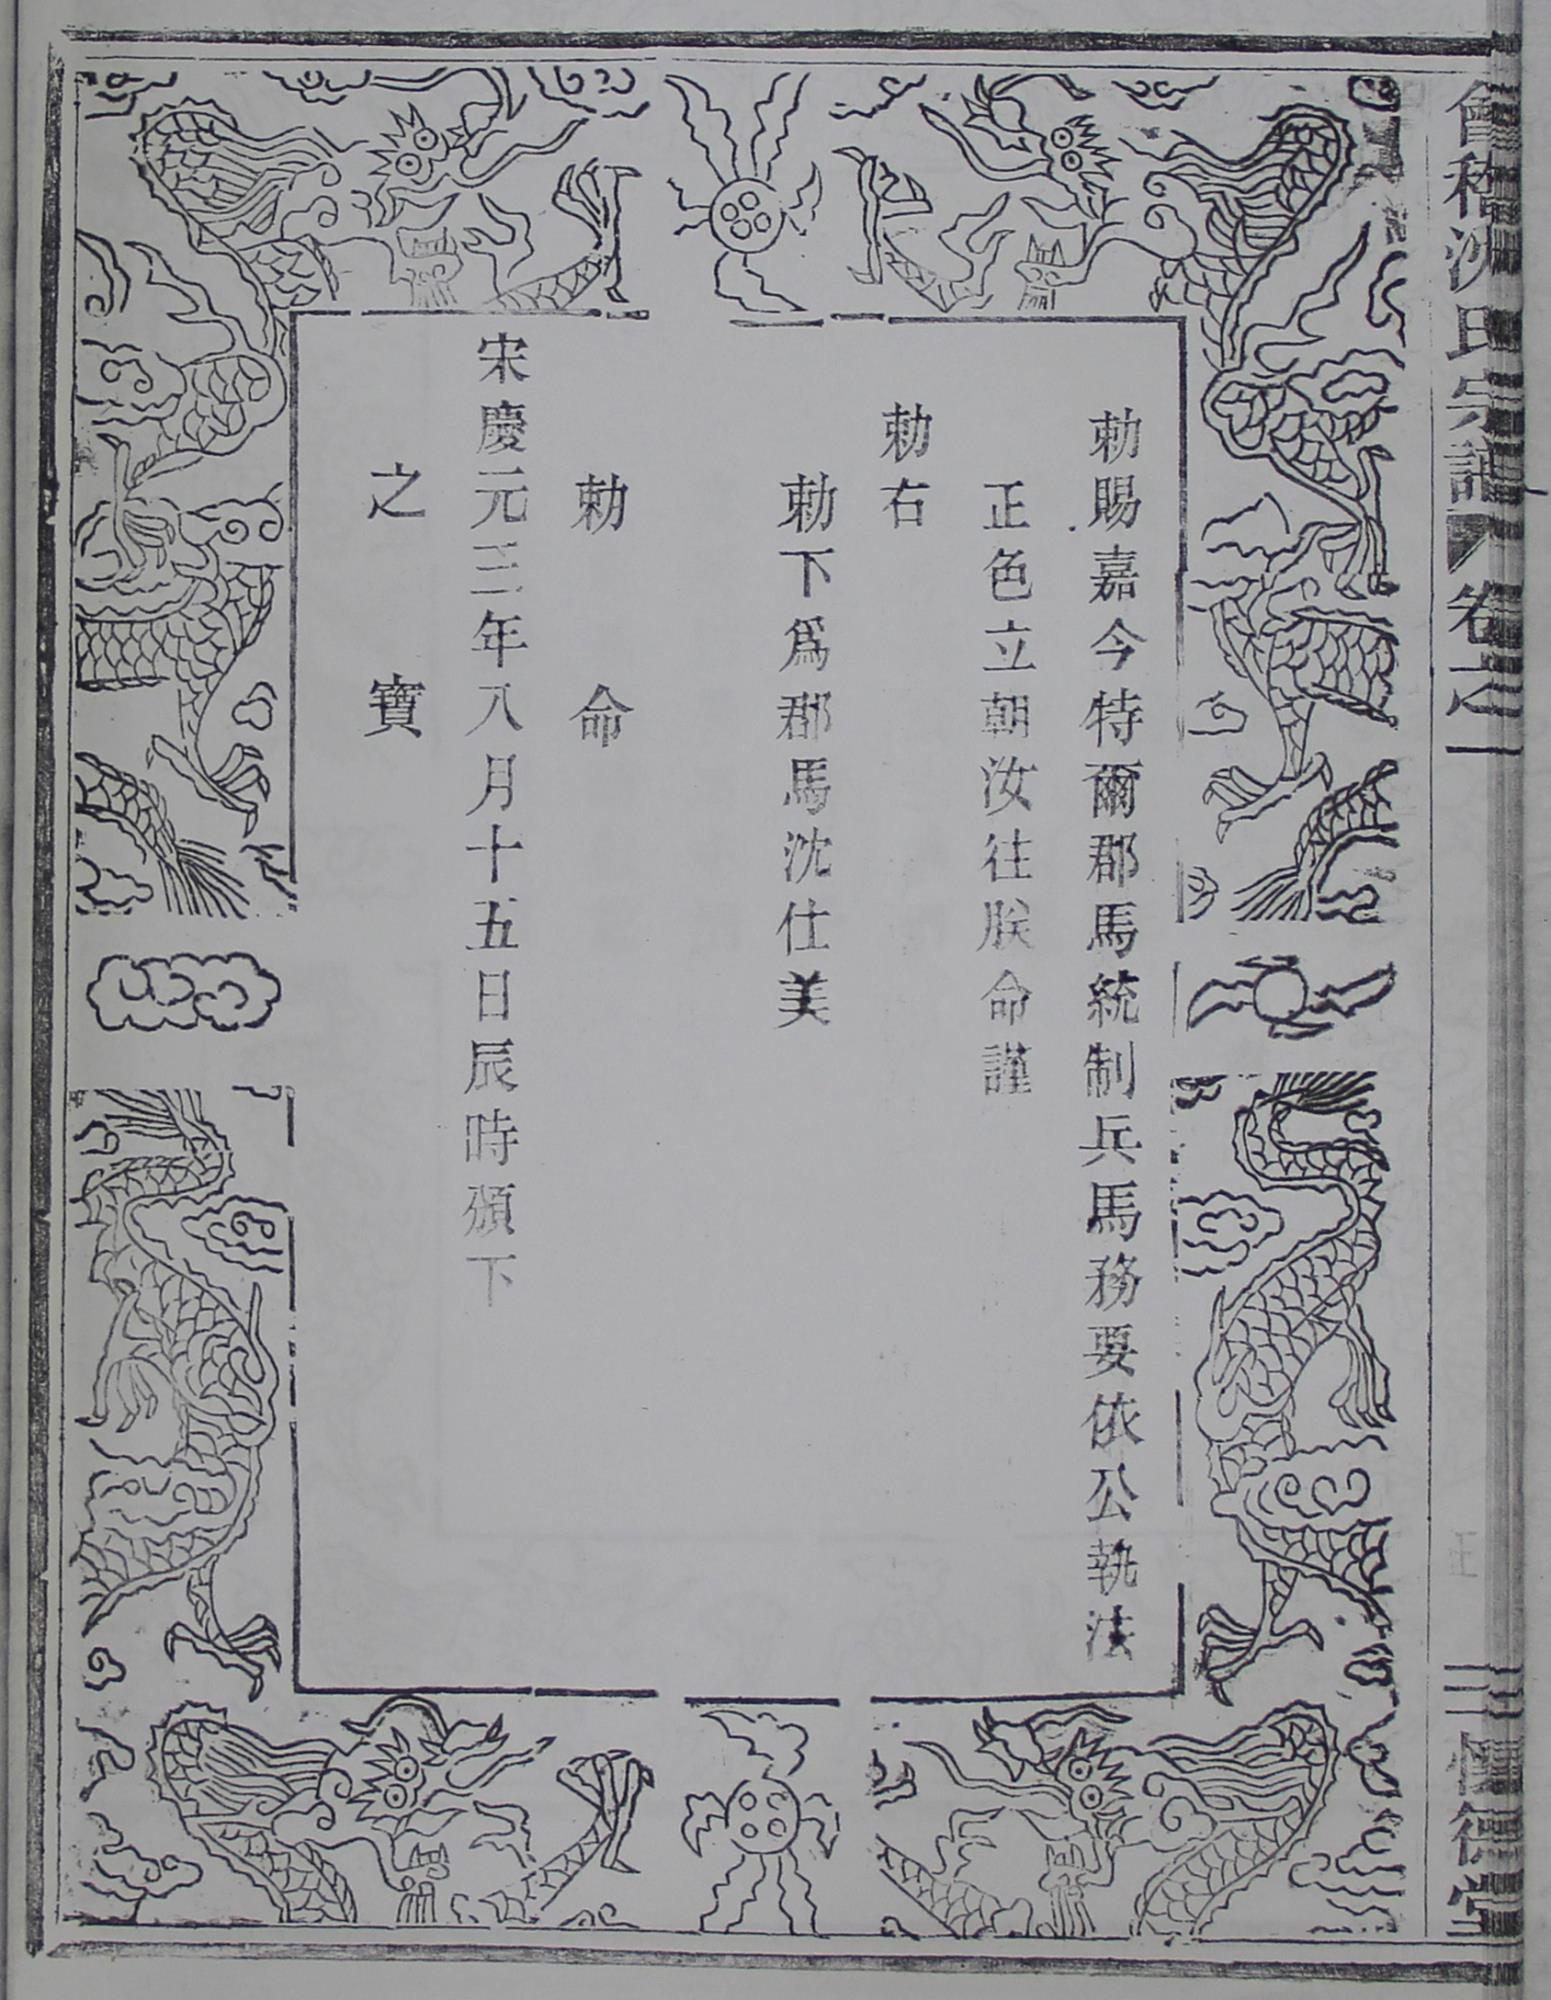 會稽沈氏宗譜 卷之一
勅賜嘉今特爾郡馬統制兵馬務要依公執法
正色立朝汝往朕命謹
勅右
勅下爲郡馬沈仕美
勅命
宋慶元三年八月十五日辰時頒下
之寶